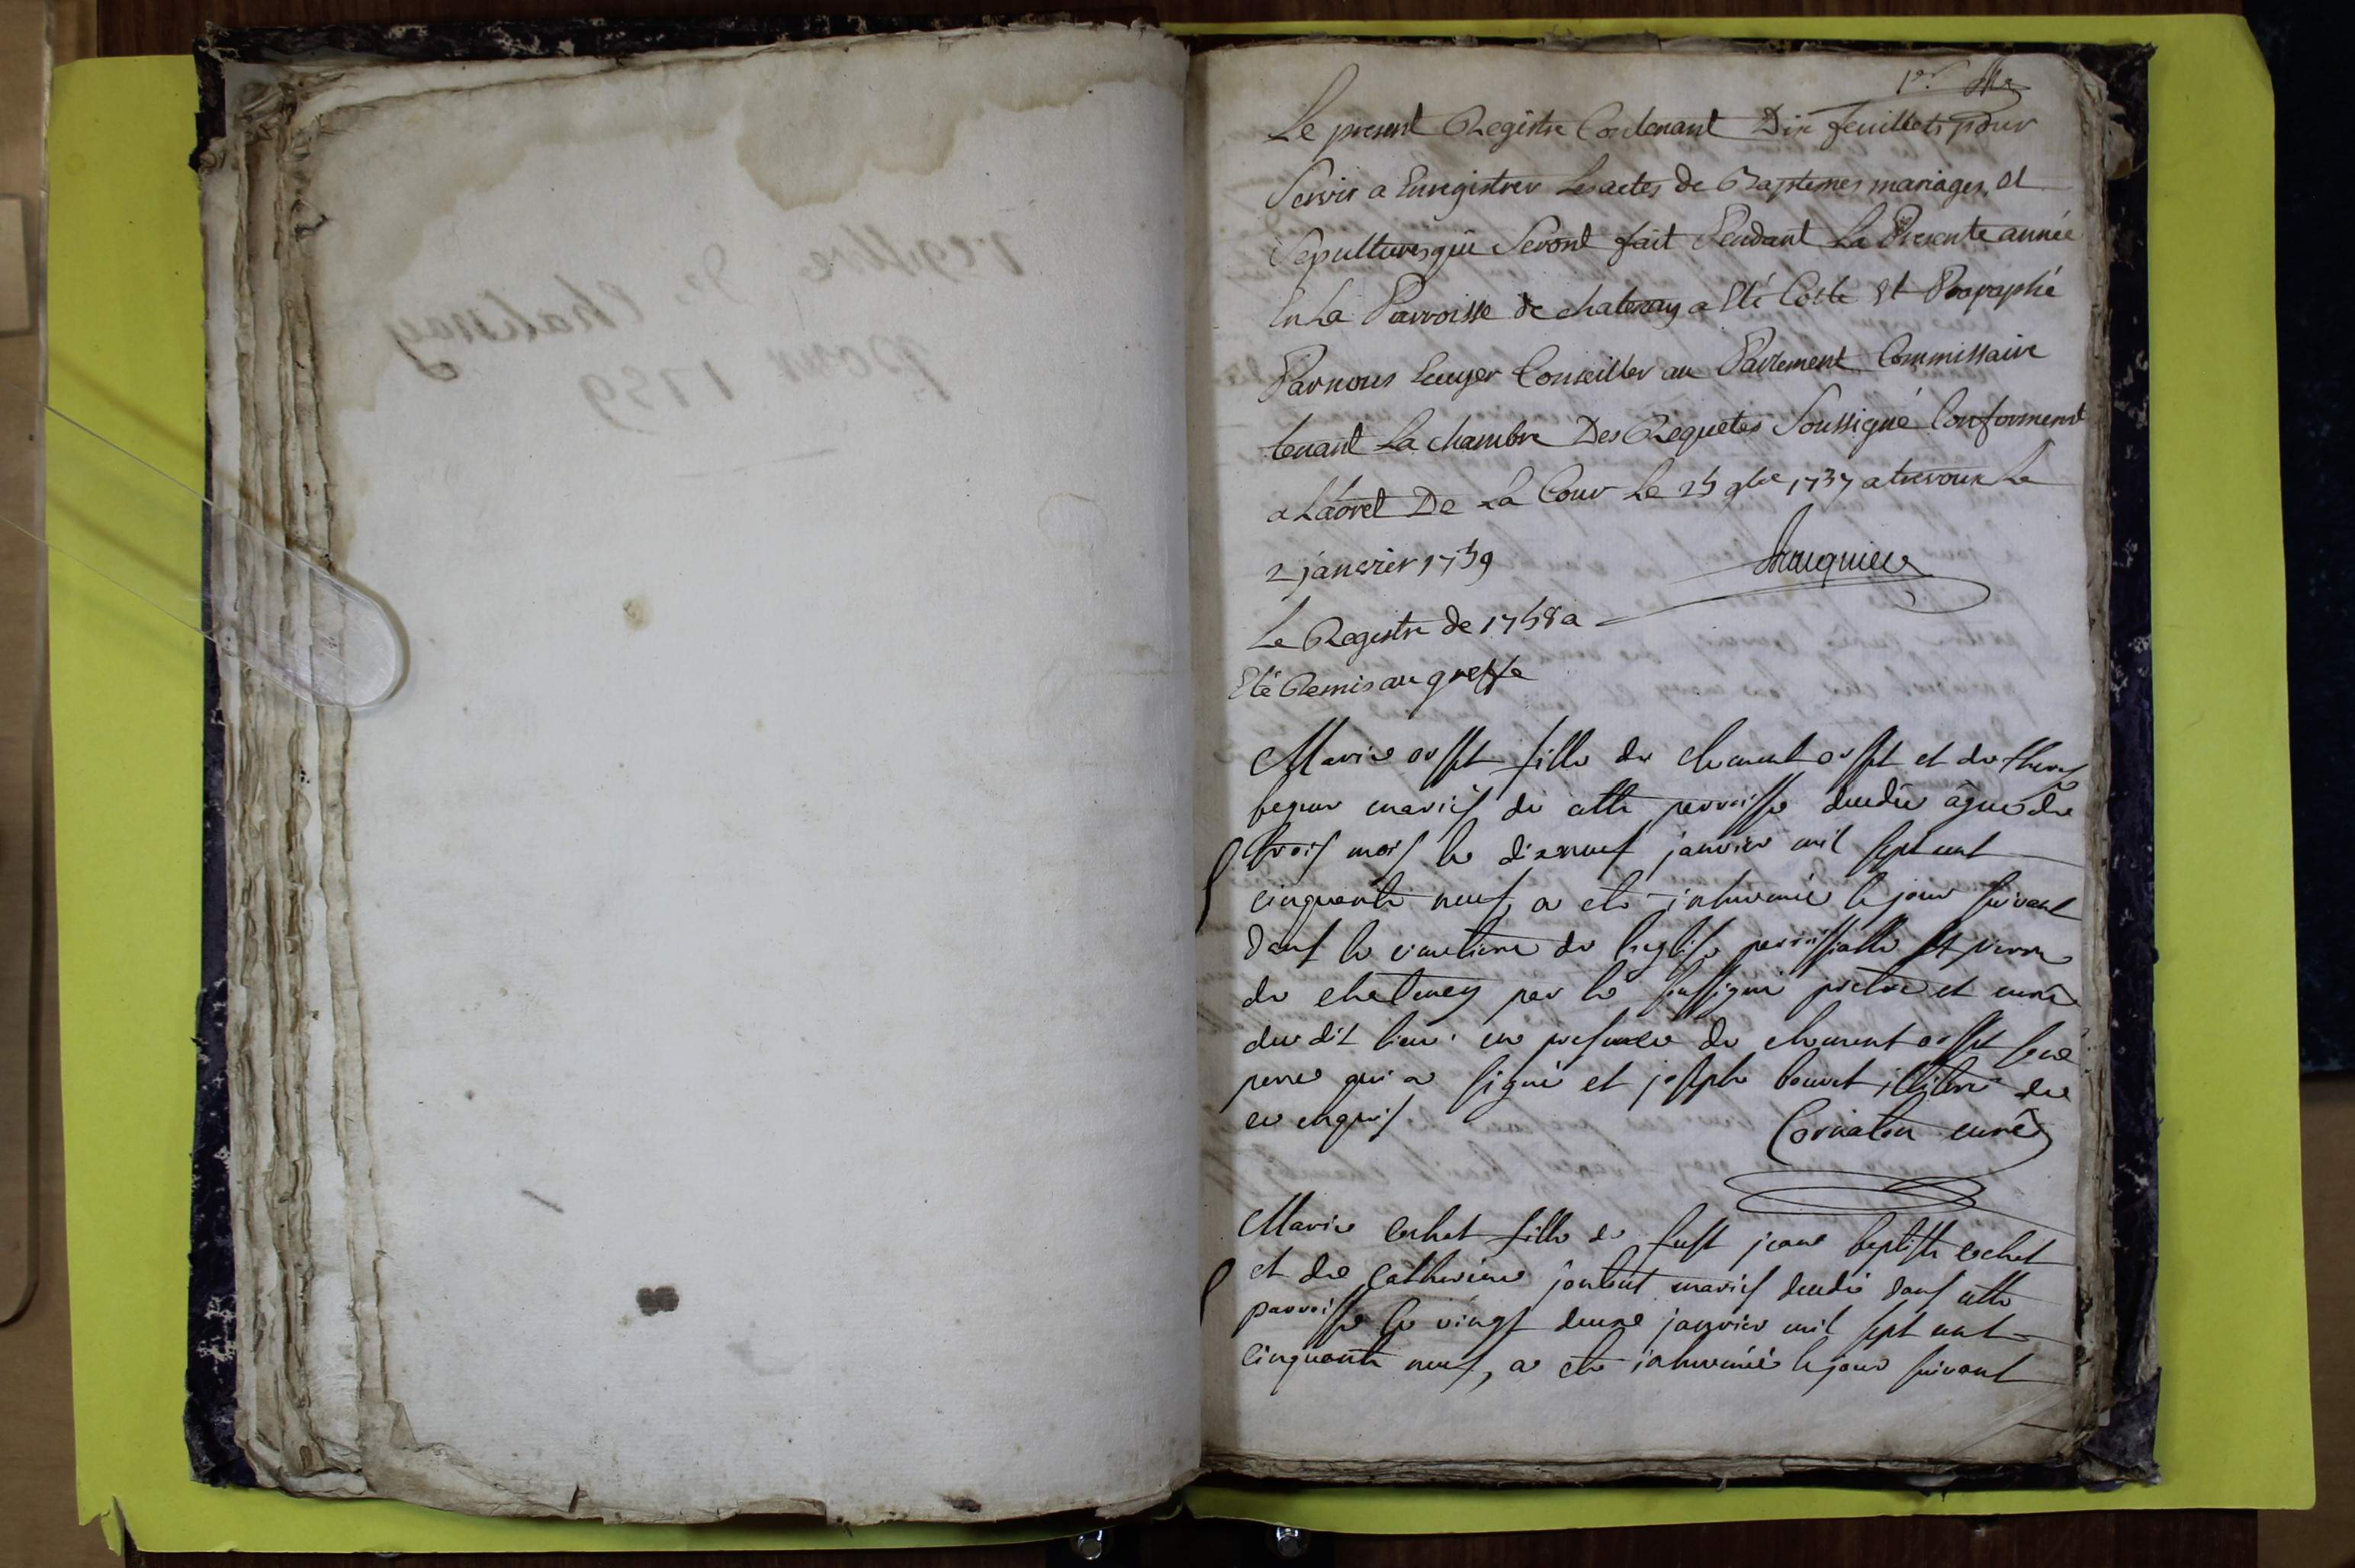 registre de Chatenay
pour 1759
1er
Le present Registre Contenant Dix feuillets pour
Servir a Enregistrer Les actes de Baptemes mariages et
Sepultures qui Seront fait Pendant La Presente année
En La Parroisse de chatenay a Eté Cotte et Paraphé
Par nous Ecuyer Conseiller au Parlement Commissaire
tenant La chambre Des Requetes Soussigné Conforment
a L'arret De La Cour Le 25 9bre 1737 a trevoux Le
2 janvier 1759
Le Registre de 1758 a
Eté Remis au greffe
Marie orset fille de clement orset et de
mariés de cette parroisse decedée âgée de
trois mois le dixneuf janvier mil sept cent
cinquante neuf, a ete inhumée le jour suivant
dans le cimetiere de l'eglise parroissialle st pierre
de chatenay par le soussigné pretre et curé
du dit lieu en presence de clement orset son
pere qui a signé et joseph bouvet illitere de
ce enquis
Cornaton curé
Marie cochet fille de fust jean baptiste cochet
et de Catherine mariés decedée dans cette
parroisse le vingt deux janvier mil sept cent
cinquante neuf, a ete inhumée le jour suivant